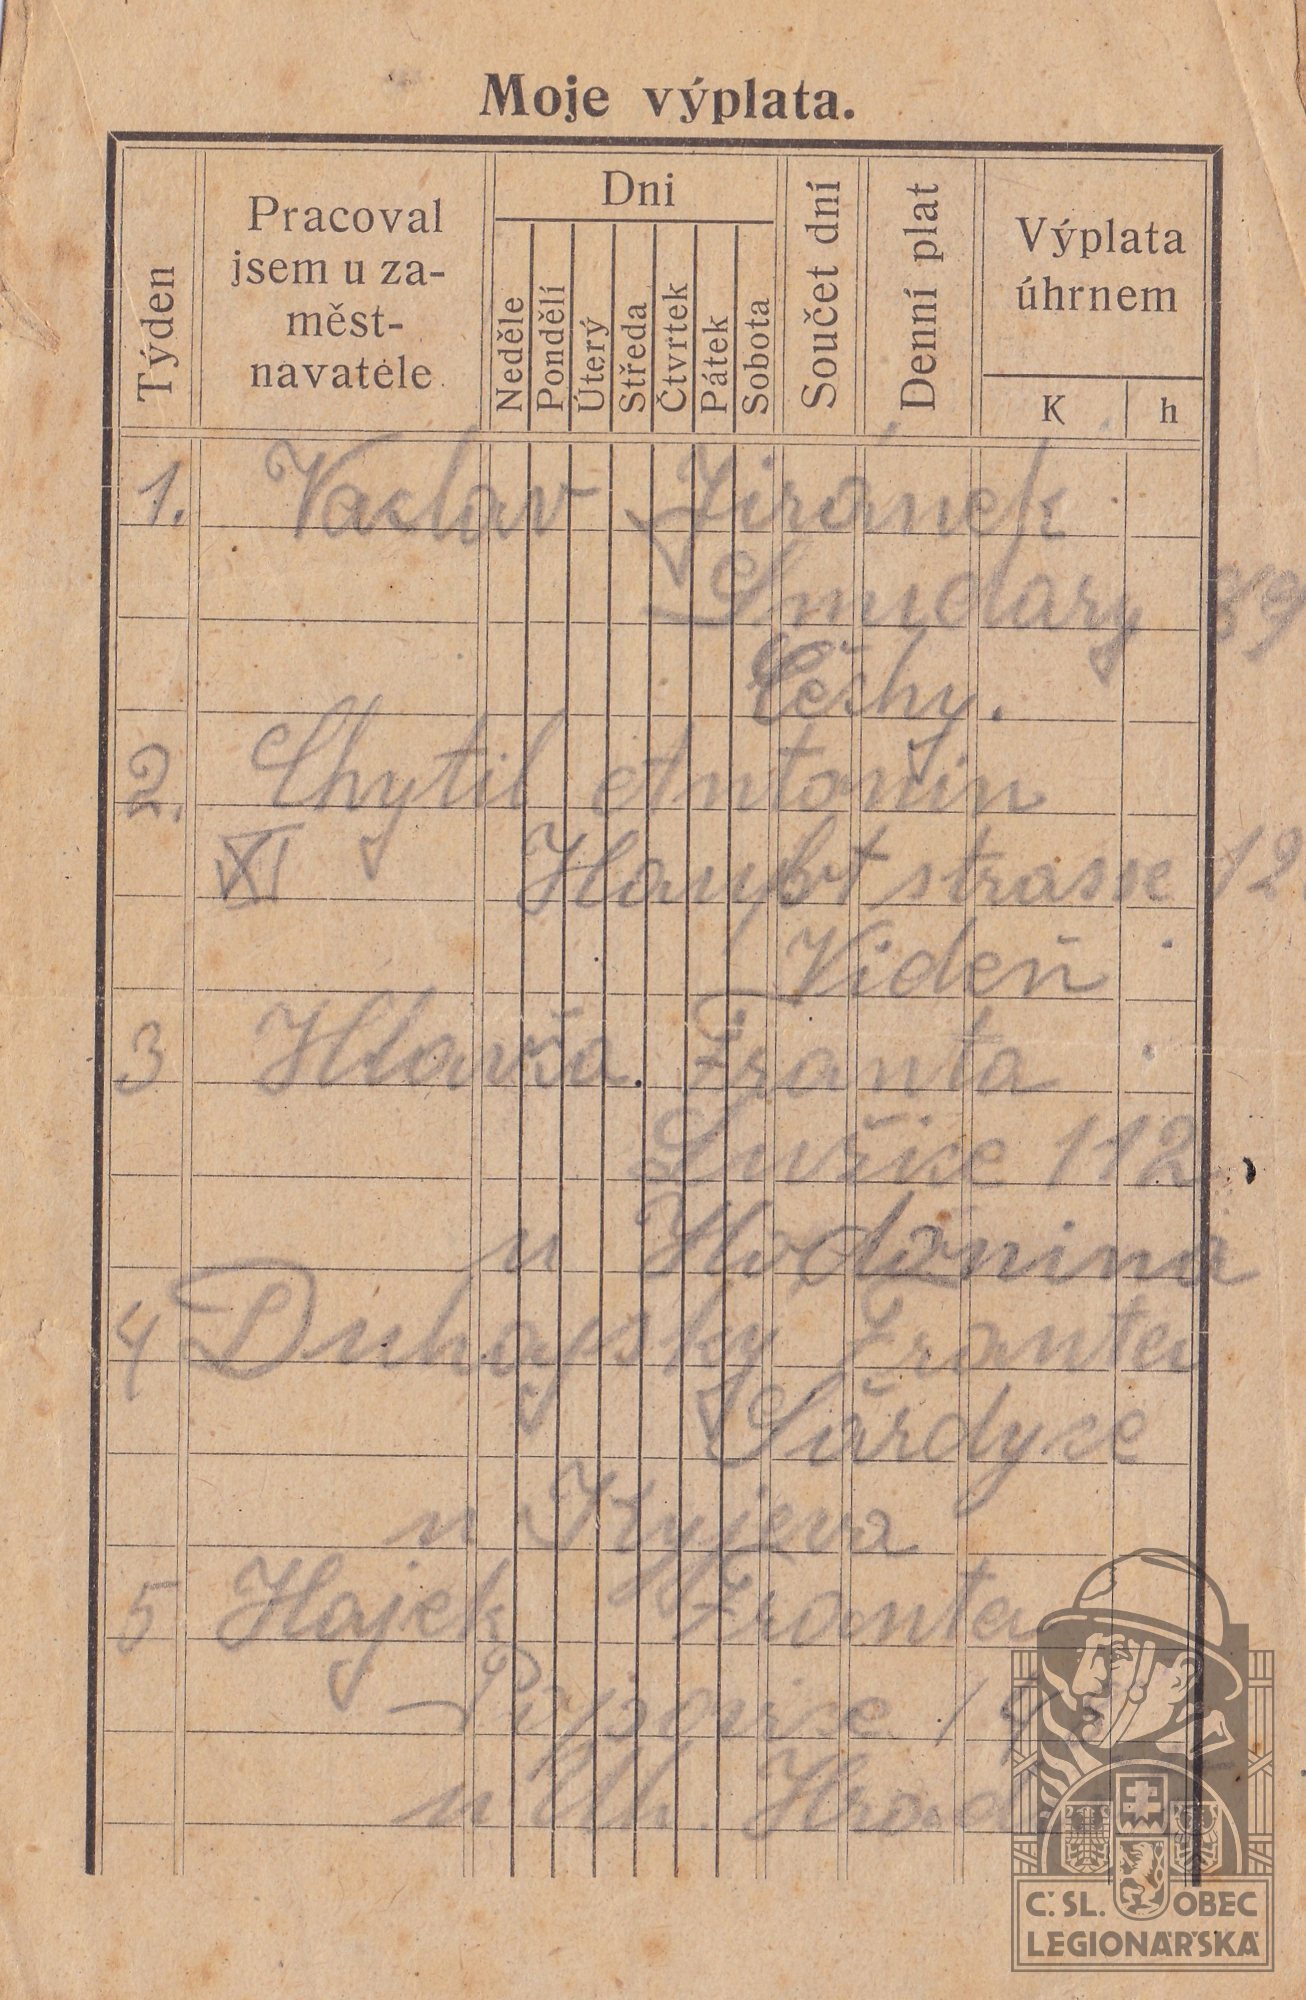 Moje výplata.
Týden
Pracoval
jsem u za-
měst-
navatele.
Dni
Neděle
Pondělí
Úterý
Středa
Čtvrtek
Pátek
Sobota
Součet dní
Denní plat
Výplata
úhrnem
K
h
1. Vaclav Jiránek
Smidary 89
Čechy.
2. Chytil Antonin
XI Haubt strasse 12
Videň
3 Hlavša. Franta
Lužice 112
u Hodonina
4 Duhajsky Franta
Šardyce
u Kyjeva
5 Hajek Franta
Popovice
u Uh. Hrad
Č.SL. OBEC
LEGIONÁŘSKÁ